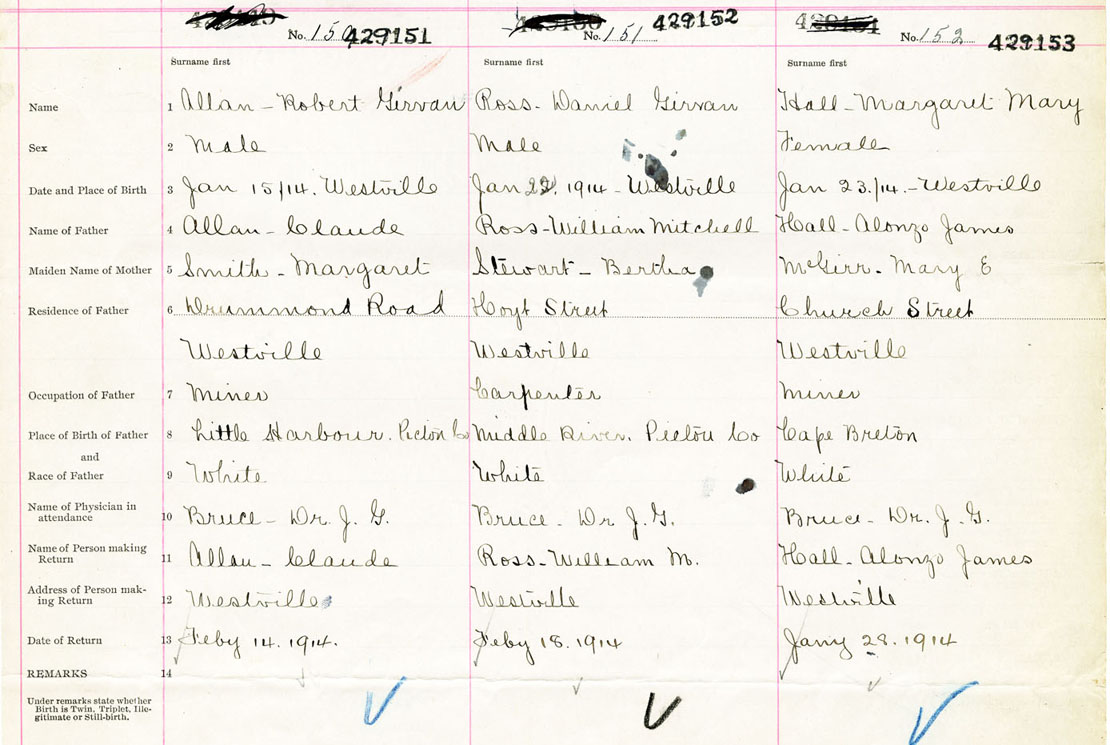 No. 150 429151 No. 151 429152 No. 152 429153
Surname first Surname first Surname first
Name 1 Allan - Robert Girvan Ross - Daniel Girvan Hall - Margaret Mary
Sex 2 Male Male Female
Date and Place of Birth 3 Jan 15/14. Westville Jan 22. 1914 - Westville Jan 23/14. - Westville
Name of Father 4 Allan - Claude Ross - William Mitchell Hall - Alonzo James
Maiden Name of Mother 5 Smith - Margaret Stewart - Bertha McGirr - Mary E
Residence of Father 6 Drummond Road Hoyt Street Church Street
Westville Westville Westville
Occupation of Father 7 Miner Carpenter Miner
Place of Birth of Father 8 Little Harbour. Pictou Co Middle River. Pictou Co Cape Breton
and
Race of Father 9 White White White
Name of Physician in
attendance 10 Bruce - Dr. J. G. Bruce - Dr J. G. Bruce - Dr. J. G.
Name of Person making
Return 11 Allan - Claude Ross - William M. Hall - Alonzo James
Address of Person mak-
ing Return 12 Westville Westville Westville
Date of Return 13 Feby 14. 1914. Feby 18. 1914 Jany 28. 1914
REMARKS 14
Under remarks state whether
Birth is Twin, Triplet, Ille-
gitimate or Still-birth.